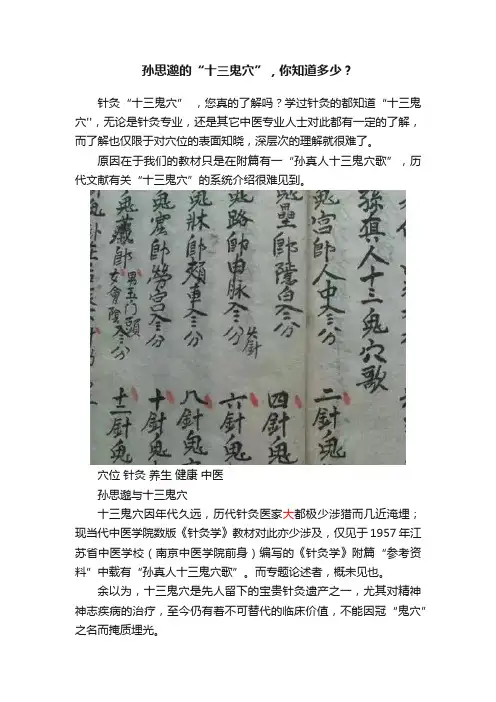 孙思邈的“十三鬼穴”，你知道多少？
针灸“十三鬼穴”，您真的了解吗？学过针灸的都知道“十三鬼
穴''，无论是针灸专业，还是其它中医专业人士对此都有一定的了解，
而了解也仅限于对穴位的表面知晓，深层次的理解就很难了。
原因在于我们的教材只是在附篇有一“孙真人十三鬼穴歌”，历
代文献有关“十三鬼穴”的系统介绍很难见到。
孫真人十三鬼穴歌
鬼宮即人中 三分 二針鬼
鬼壘即隱白 三分 四針鬼
鬼路即由脉 三分 火針 六針鬼
鬼牀即頰車 三分 八針鬼
鬼窟即勞宮 三分 十針鬼
鬼藏即 男玉门頭 女會陰 三分 十二針鬼
穴位 针灸 养生 健康 中医
孙思邈与十三鬼穴
十三鬼穴因年代久远，历代针灸医家大都极少涉猎而几近淹埋；
现当代中医学院数版《针灸学》教材对此亦少涉及，仅见于 1957 年江
苏省中医学校（南京中医学院前身）编写的《针灸学》附篇“参考资
料”中载有“孙真人十三鬼穴歌”。而专题论述者，概未见也。
余以为，十三鬼穴是先人留下的宝贵针灸遗产之一，尤其对精神
神志疾病的治疗，至今仍有着不可替代的临床价值，不能因冠“鬼穴”
之名而掩质埋光。